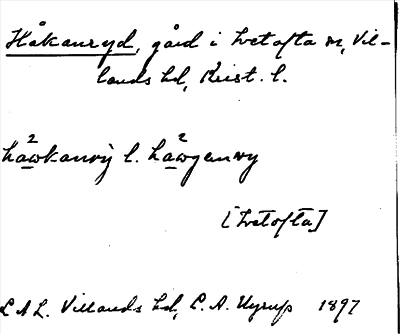 Håkanryd, gård i Ivetofta sn, Vil-
lands hd, Krist. l.
hawkanry l. hawgenry
2 2
[Ivetofta]
LAL. Villands hd, C. A. Ugrup 1897